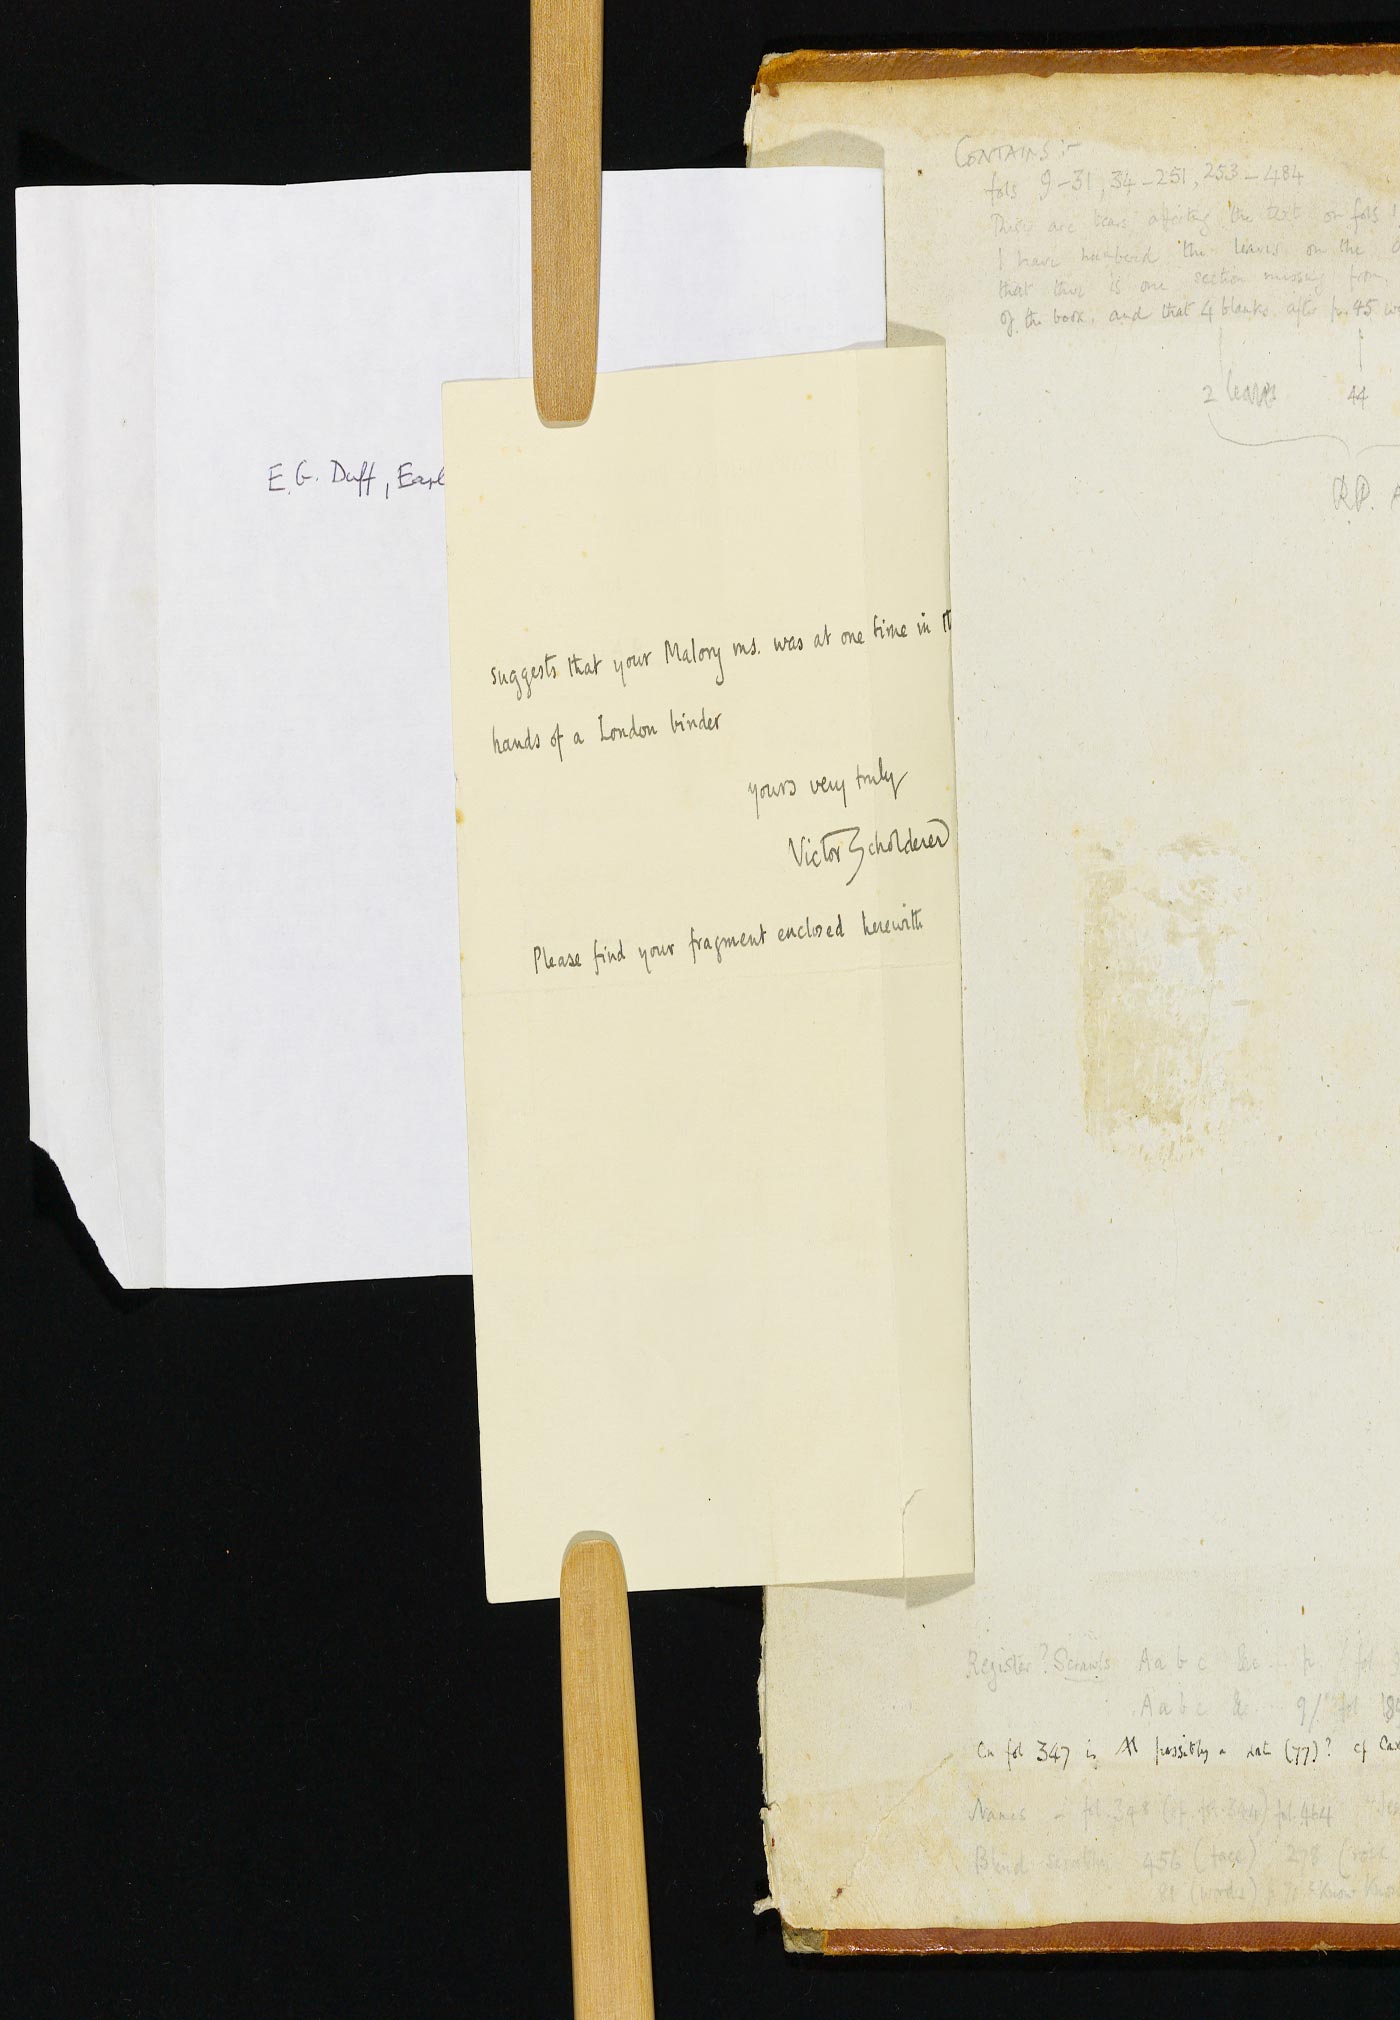 E. G. Duff, Earl
suggests that your Malory ms. was at one time in th
hands of a London binder
yours very truly
Victor Scholderer
Please find your fragment enclosed herewith
CONTAINS :-
fols 9-31, 34-251, 253-484
There are tears affecting the text on fols
I have numbered the leaves on the
that there is one section missing from
of the book. and that 4 blanks after p. 45
2 leaves 44
R.P.
Register? Scrawls A a b c &c. p. / fol
A a b c &c. q / fol
On fol 347 is possibly a date (77)? cf Cax
Names - fol. 348 (cf. fol. 344) fol. 464
Blind scribbles 456 (face) 278
81 (words)